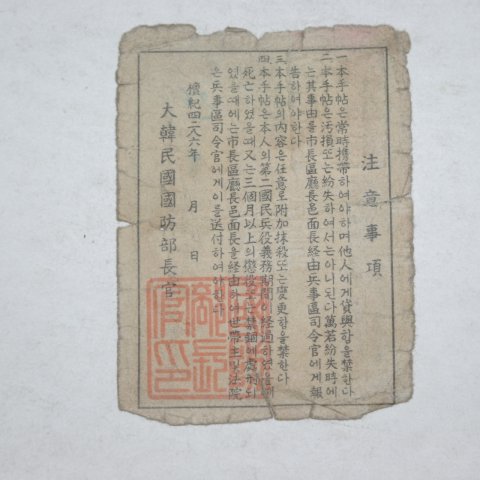 注意事項
一 本手帖은 常時携帶하여야하며 他人에게 貸與함을 禁한다
二 本手帖은 汚損또는 紛失하여서는 아니된다 萬若 紛失時에
는 其事由를 市長區廳長邑面長經由 兵事區司令官에게 報
告하여야한다
三 本手帖의 內容은 任意로 附加抹殺또는 變更함을 禁한다
四 本手帖은 本人의 第二國民兵役義務期間이 經過하였을
死亡하였을때 又는 三個月以上의 懲役또는 禁錮에 處刑되
였을때에는 市長區廳長邑面長을 経由하여 世帶主
은 兵事區司令官에게 이를 送付하여야한다
檀紀四二八六年 月 日
大韓民國國防部長官